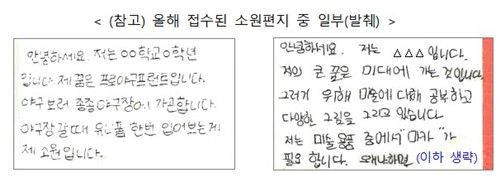 < (참고) 올해 접수된 소원편지 중 일부(발췌) >
안녕하세요. 저는 OO학교O학년
입니다 제 꿈은 프로야구프런트입니다.
야구 보러 종종 야구장에 가곤합니다.
야구장 갈 때 유니폼 한번 입어보는게
제 소원입니다.
안녕하세요. 저는 △△△입니다.
저의 큰 꿈은 미대에 가는 것입니다.
그러기 위해 미술에 대해 공부하고
다양한 그림을 그리고 있습니다.
저는 미술 용품 중에서 "마카"가
필요 합니다. 왜냐하면 (이하 생략)